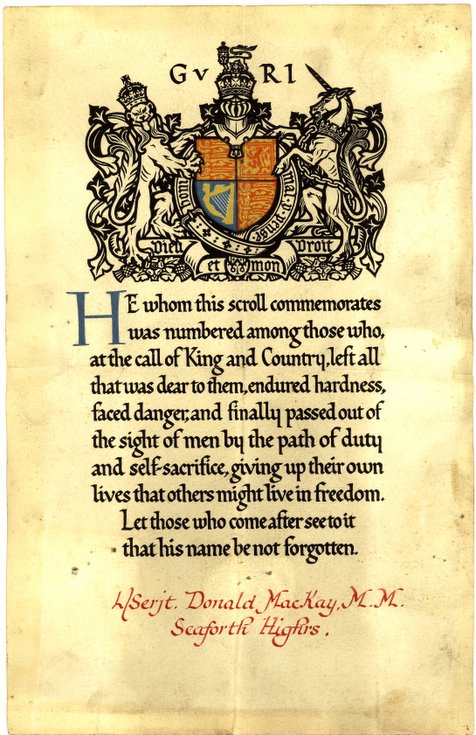 GV RI
Honi soit qui mal y pense
Dieu et mon Droit
HE whom this scroll commemorates
was numbered among those who,
at the call of King and Country, left all
that was dear to them, endured hardness,
faced danger, and finally passed out of
the sight of men by the path of duty
and self-sacrifice, giving up their own
lives that others might live in freedom.
Let those who come after see to it
that his name be not forgotten.
L/Serjt. Donald MacKay, M.M.
Seaforth Highrs.